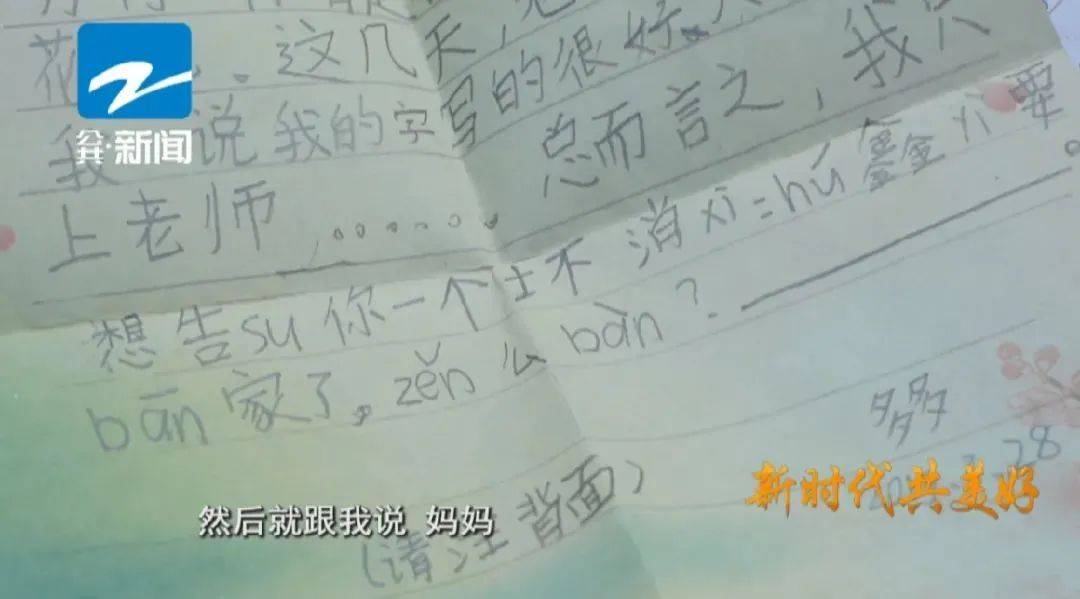 花 . 这几天,
我 说我的字写的很好.
总而言之,我只
上老师......
想告su你一个土不消xi=hú鑫鑫家要
bān家了。zěn么bàn?
多多
28
(请注背面)
公共·新闻
新时代共美好
然后就跟我说 妈妈